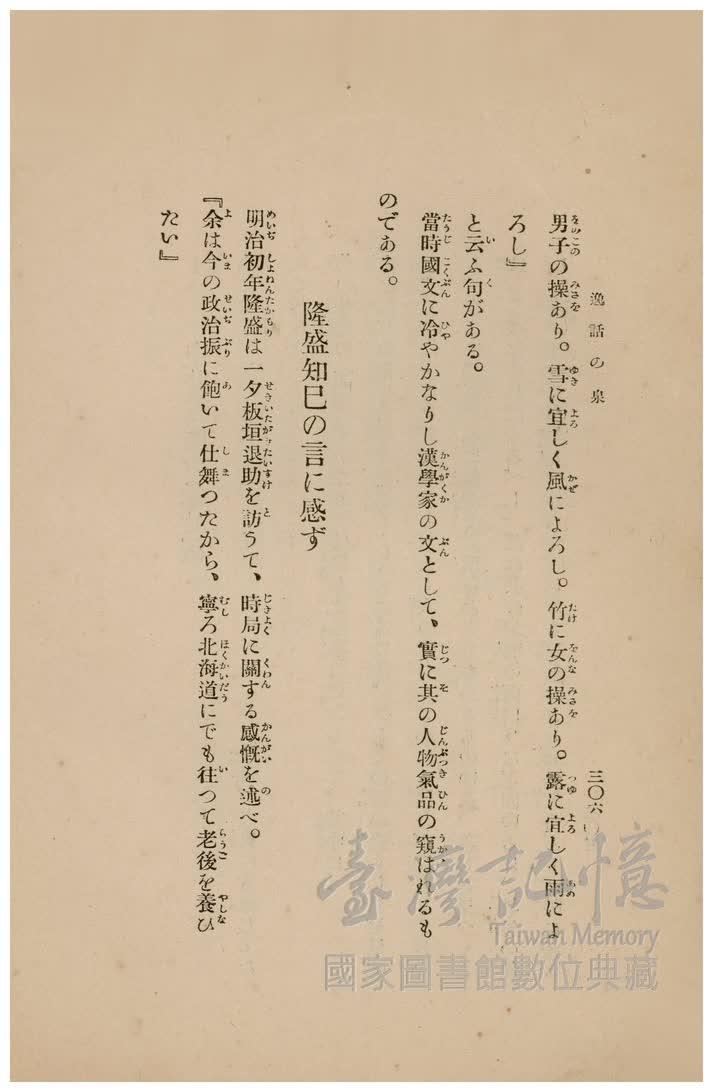 逸話の泉
三〇六
男子の操あり。雪に宜しく風によろし。竹に女の操あり。露に宜しく雨によ
ろし』
と云ふ句がある。
當時國文に冷やかなりし漢學家の文として、實に其の人物氣品の窺はれるも
のである。
隆盛知巳の言に感ず
明治初年隆盛は一夕板垣退助を訪うて、時局に關する感慨を述べ。
『余は今の政治振に飽いて仕舞つたから、寧ろ北海道にでも往つて老後を養ひ
たい』
臺灣記憶
Taiwan Memory
國家圖書館數位典藏